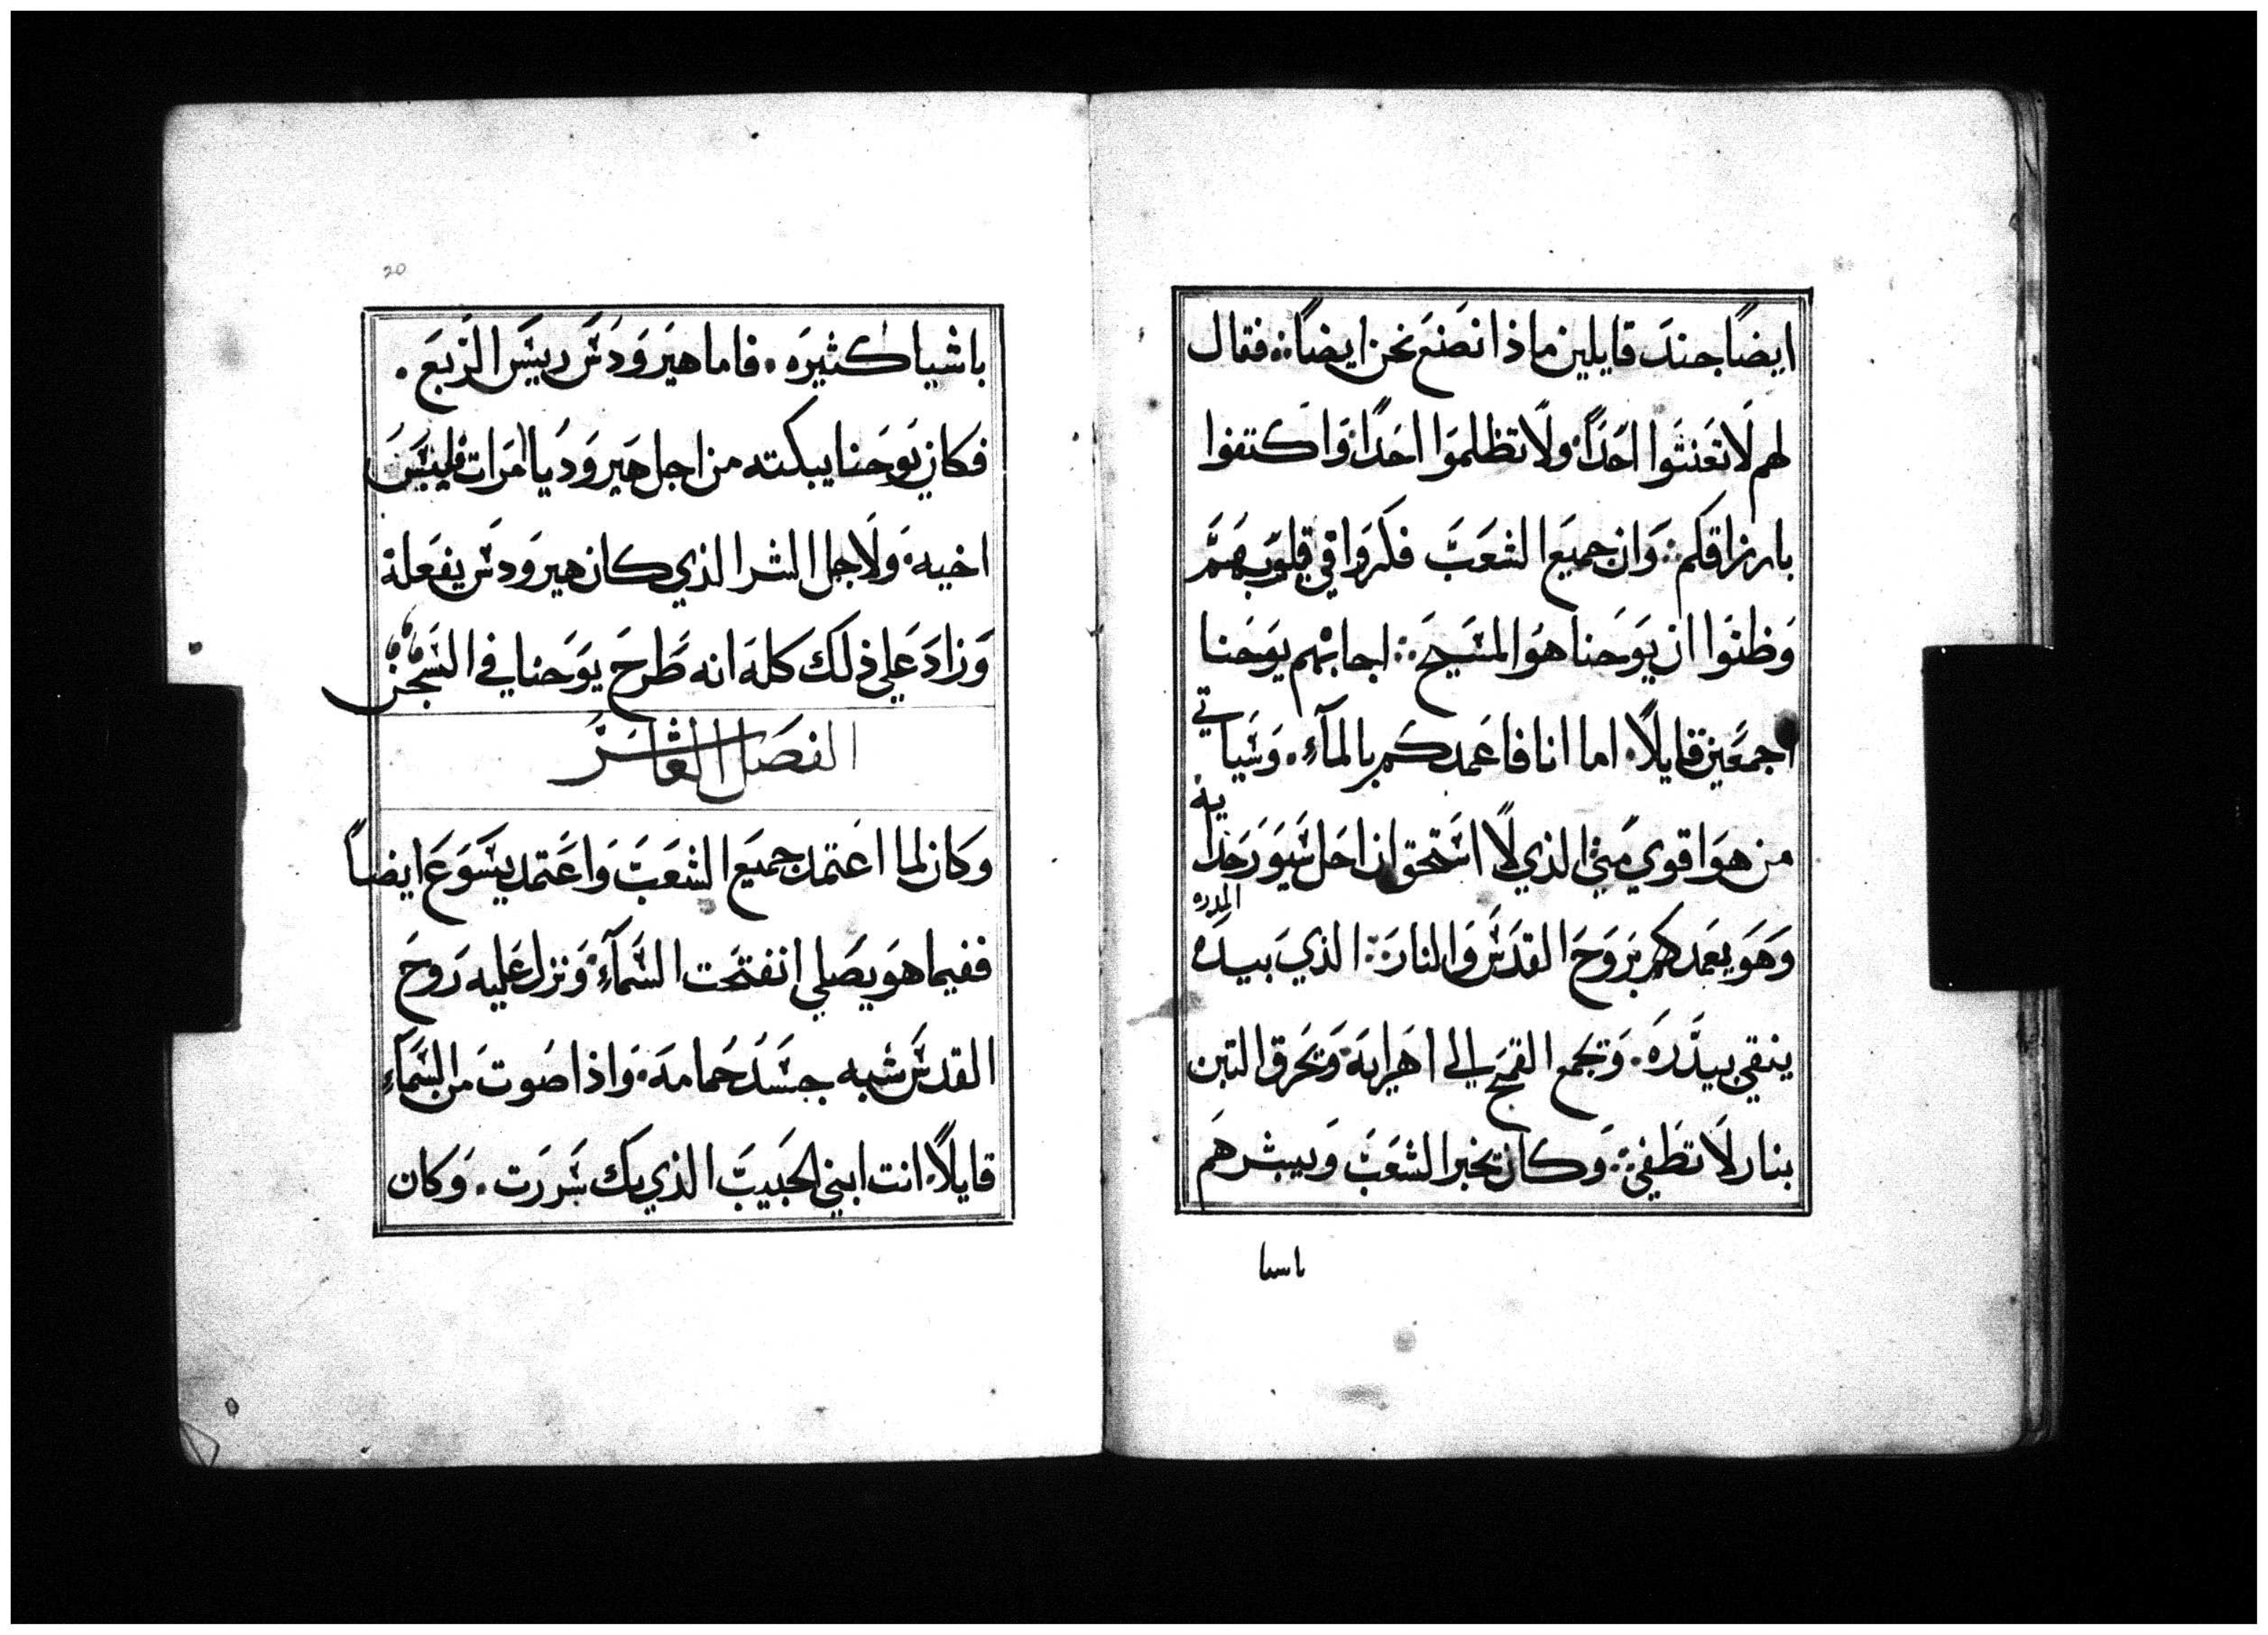 ايضًا جند قايلين ماذا نصنع نحن ايضًا فقال
لهم لا تعنتوا احدًا ولا تظلموا احدًا واكتفوا
بارزاقكم وان جميع الشعب فكروا في قلوبهم
وظنوا ان يوحنا هو المسيح اجابهم يوحنا
اجمعين قايلًا اما انا فاعمدكم بالمآء وسياتي
من هو اقوي مني الذي لا استحق ان احل سيور حذايه
وهو يعمدكم بروح القدس والنار الذي بيده المدره
ينقي بيدره ويجمع القمح الي اهرايه ويحرق التبن
بنار لا تطفي وكان يخبر الشعب ويبشرهم
باسيا
20
باشيا كثيره فاما هيرودس رييس الربع
فكان يوحنا يبكته من اجل هيروديا امرات فيلبس
اخيه ولاجل الشر الذي كان هيرودس يفعلة
وزاد علي ذلك كله انه طرح يوحنا في السجن
الفصل العاشر
وكان لما اعتمد جميع الشعب واعتمد يسوع ايضًا
ففيما هو يصلي انفتحت السمآء ونزل عليه روح
القدس شبه جسد حمامة واذا صوت من السمآء
قايلًا انت ابني الحبيب الذي بك سررت وكان